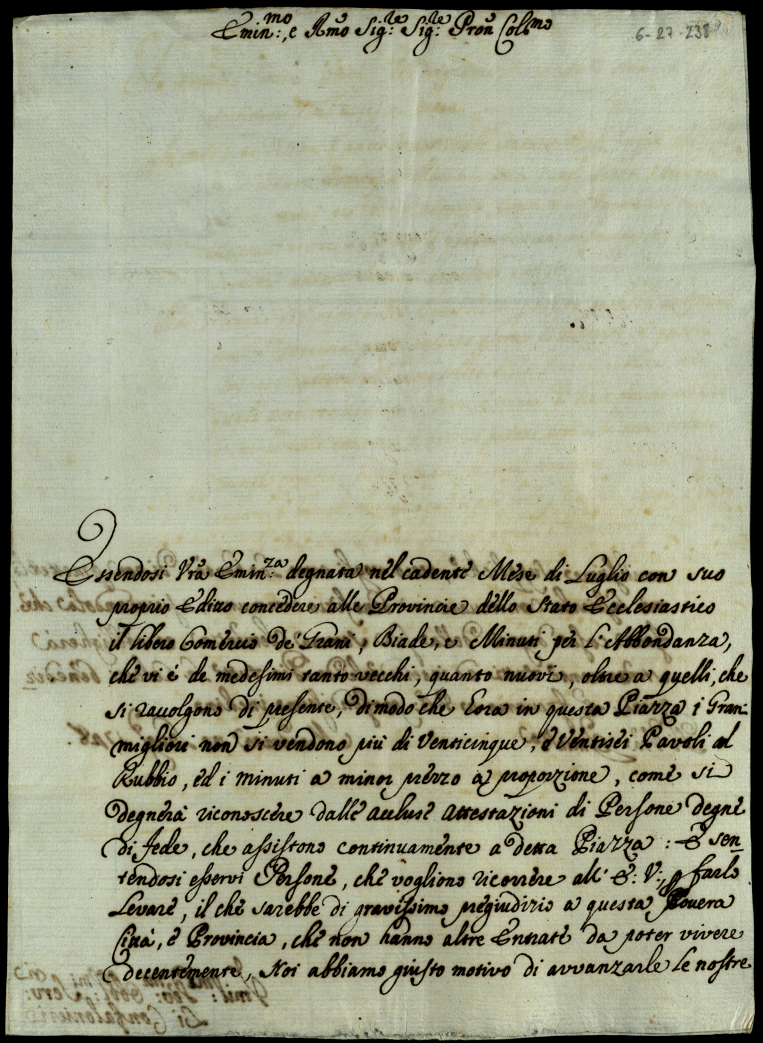 Emin:mo, e Rmo Sig:re Sig:re Pron Colmo
6-27-238
Essendosi Vrã Emin:za degnata nel cadente Mese di Luglio con suo
proprio Editto concedere alle Provincie dello Stato Ecclesiastico
il libero Comercio de' Grani, Biade, e Minuti per l'Abbondanza,
che vi è de medesimi tanto vecchi, quanto nuovi, oltre a quelli, che
si raccolgono di presente, dimodo che Eora in questa Piazza i Grani
migliori non si vendono più di Venticinque, e Ventisei Pavoli al
Rubbio, ed i minuti a minor prezzo a proporzione, come si
degnerà riconoscere dalle accluse Attestazioni di Persone degne
di fede, che assistono continuamente a detta Piazza: E sen-
tendosi esservi Persone, che vogliono ricorrere all' E: V: p farlo
Levare, il che sarebbe di gravissimo pregiudizio a questa Povera
Città, e Provincia, che non hanno altre Entrate da poter vivere
decentemente, Noi abbiamo giusto motivo di avvanzarle le nostre